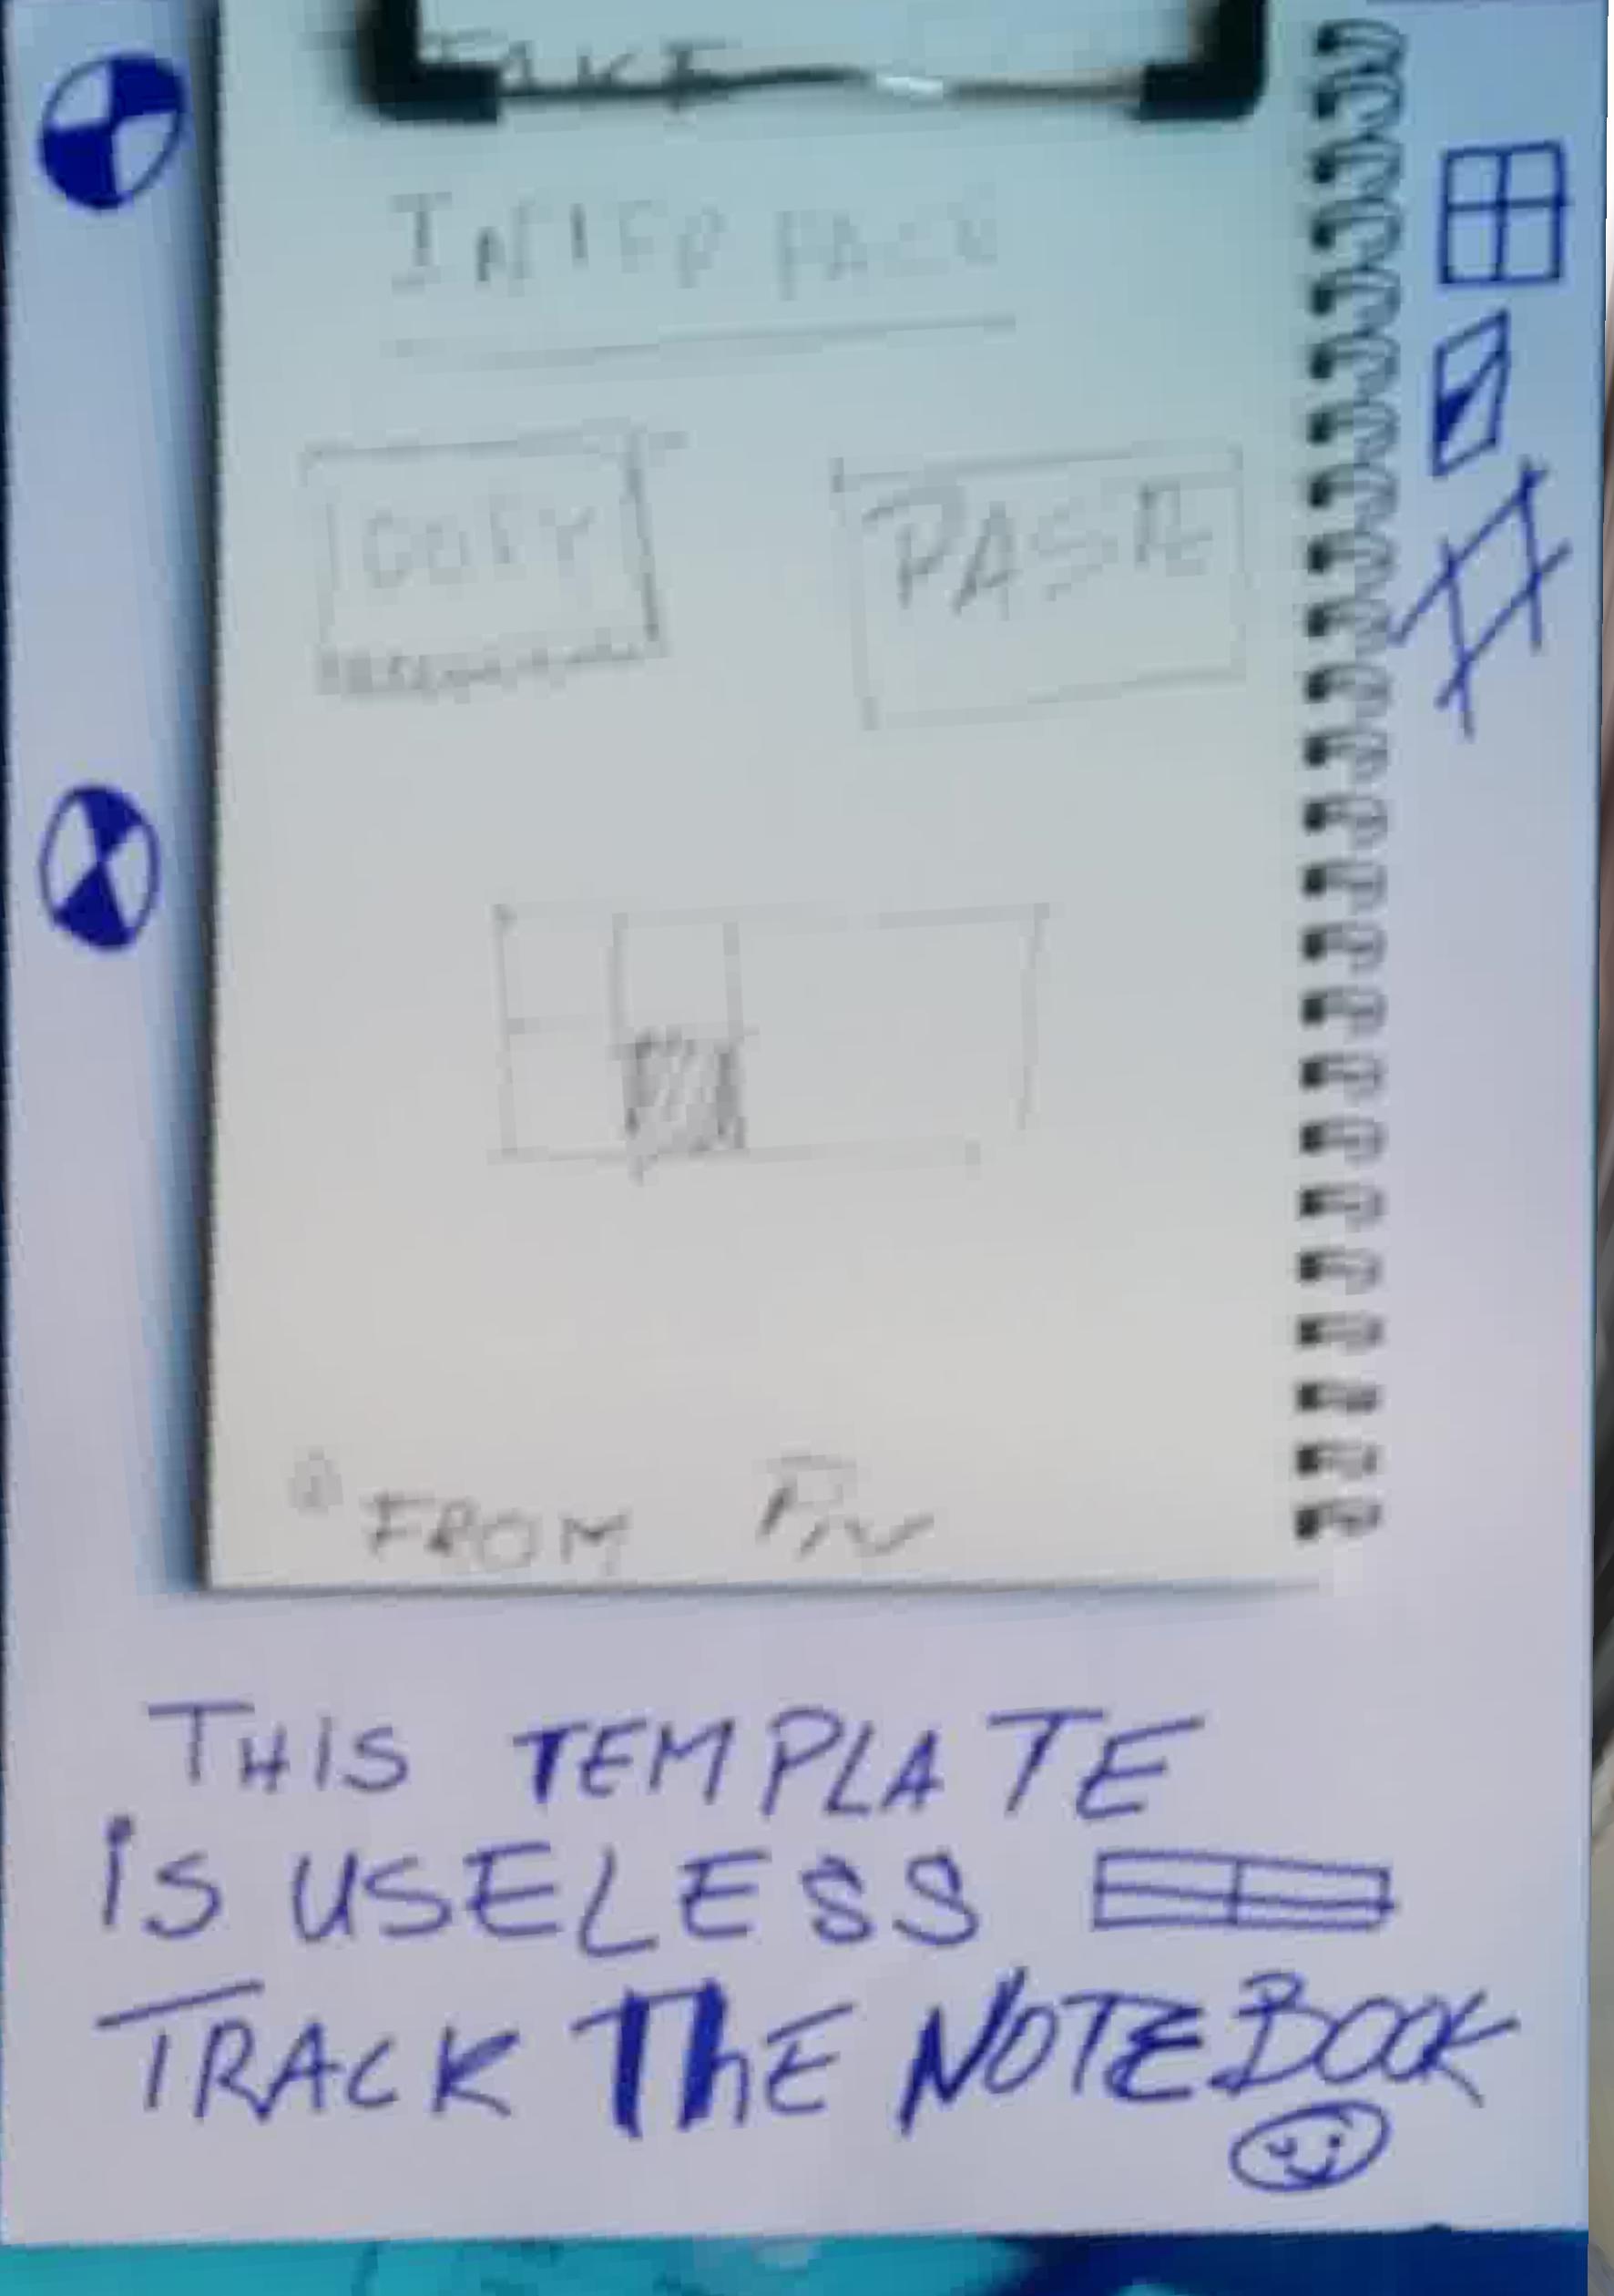 FAKE
INTERFACE
COPY
PASTE
FROM
THIS TEMPLATE
iS USELESS
TRACK ThE NOTEBOOK